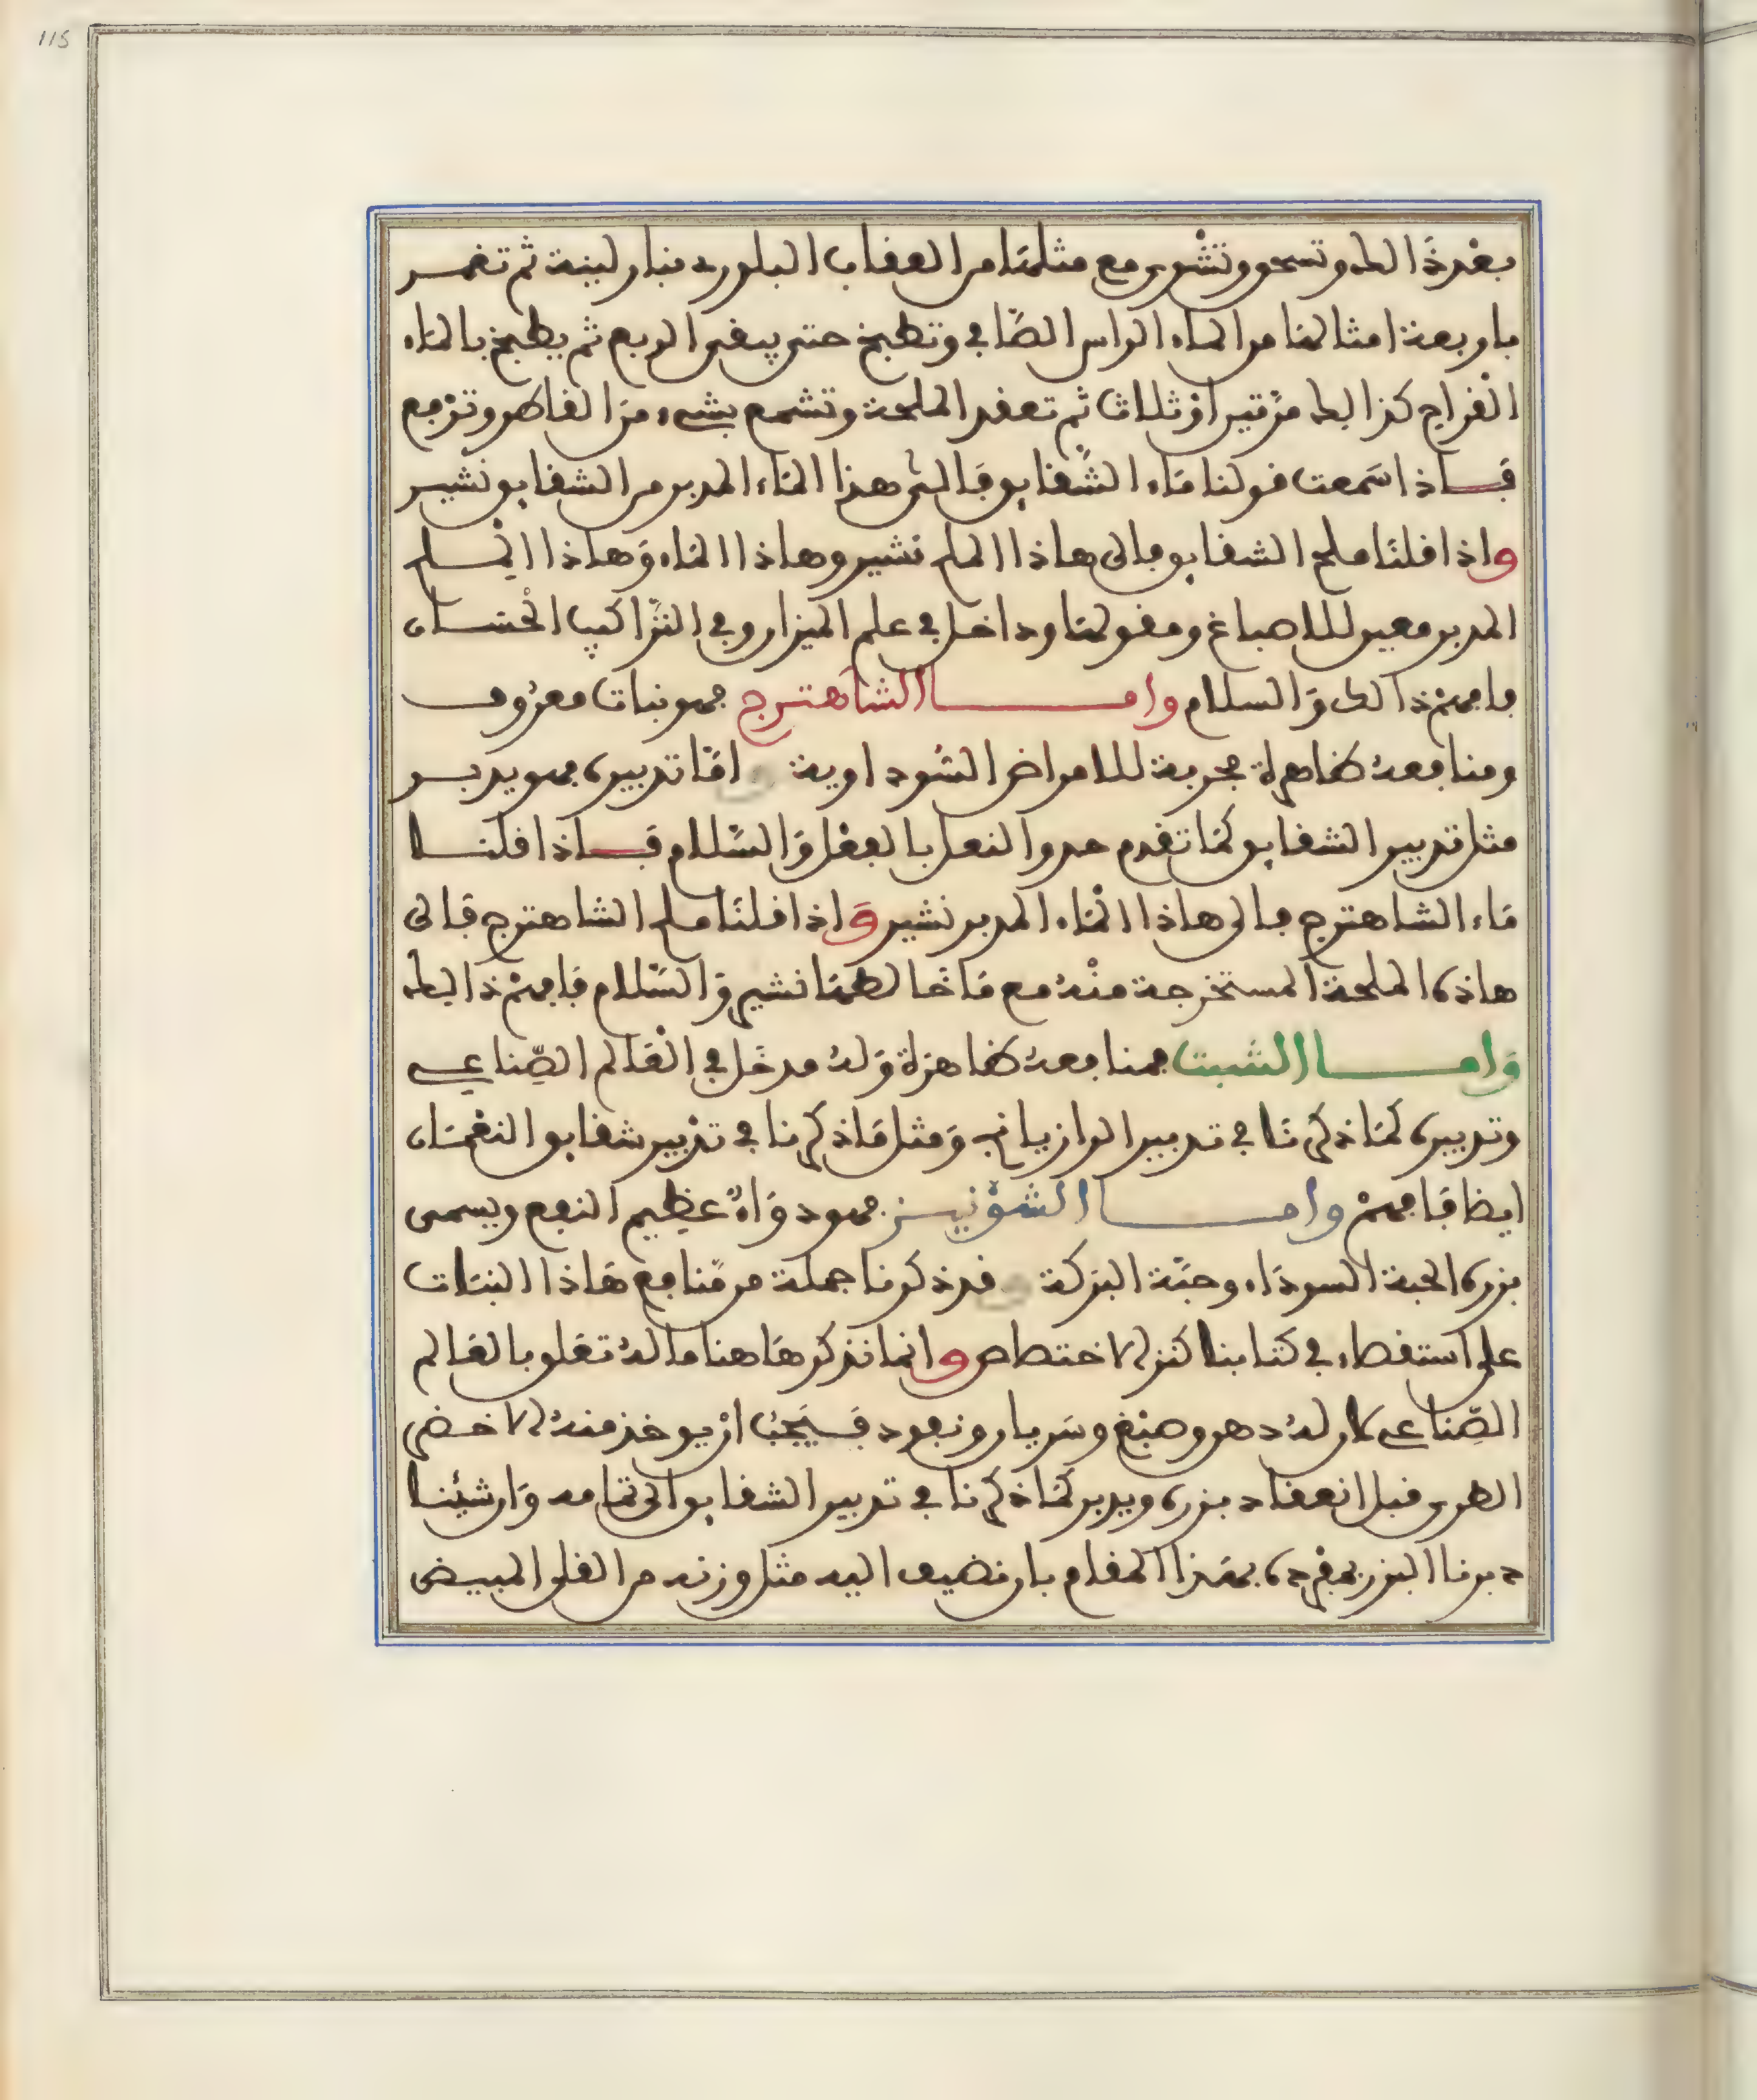 115
بعد ذالك وتسحق وتشوى مع مثلها من العقاب البلورى بنار لينة ثم تغمر
باربعة امثالها من الماء الراس الصافي وتطبخ حتى يبقى الربع ثم يطبخ بالماء
القراح كذالك مرتين او ثلاث ثم تعقد الملحة وتشمع بشيء من القاطر وترفع
فاذا سمعت قولنا ماء الشقايق فالى هذا الماء المدبر من الشقايق نشير
واذا قلنا ملح الشقايق فالى هاذا الملح نشير وهاذا الماء وهاذا الملح
المدبر معين للاصباغ ومقو لها وداخل في علم الميزان وفي التراكيب الحسان
فافهم ذالك والسلام وامــا الشاهترج فهو نبات معروف
ومنافعه ظاهرة مجربة للامراض السوداوية امّا تدبيره فهو يدبر
مثل تدبير الشقايق كما تقدم حدو النعل بالنعل والسّلام فاذا قلنا
ماء الشاهترج فالى هاذا الماء المدبر نشير واذا قلنا ملح الشاهترج فالى
هاذه الملحة المستخرجة منه مع ما خالطها نشير والسّلام فافهم ذالك
وامــا الشبت فمنافعه ظاهرة وله مدخل في العالم الصّناعي
وتدبيره كما ذكرنا في تدبير الرازيانج ومثل ما ذكرنا في تدبير شقايق النعمان
ايضا فافهم وامــا الشونيــز فهو دواء عظيم النفع ويسمى
بزره الحبة السوداء وحبّة البركة قد ذكرنا جملة من منافع هاذا النبات
على استقصاء في كتابنا كنز الاختصاص وانما نذكر هاهنا ما له تعلق بالعالم
الصّناعي كان له دهن وصبغ وسريان ونفود فيجب ان يوخذ منه الاخضر
الطرى قبل انعقاد بزره ويدبر كما ذكرنا في تدبير الشقايق الى تمامه وان شئنا
دبرنا البزر بمفرده بهذا المقام بان نضيف اليه مثل وزنه من القلى المبيض